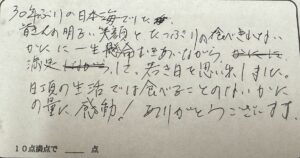 30年ぶりの日本海でした。
皆さんの明るい笑顔とたっぷりの食べきれない
かにに一生懸命向きあいながら、
満足して、若き日を思い出しました。
日頃の生活では食べることのないかに
の量に感動! ありがとうございます。
10点満点で ____ 点